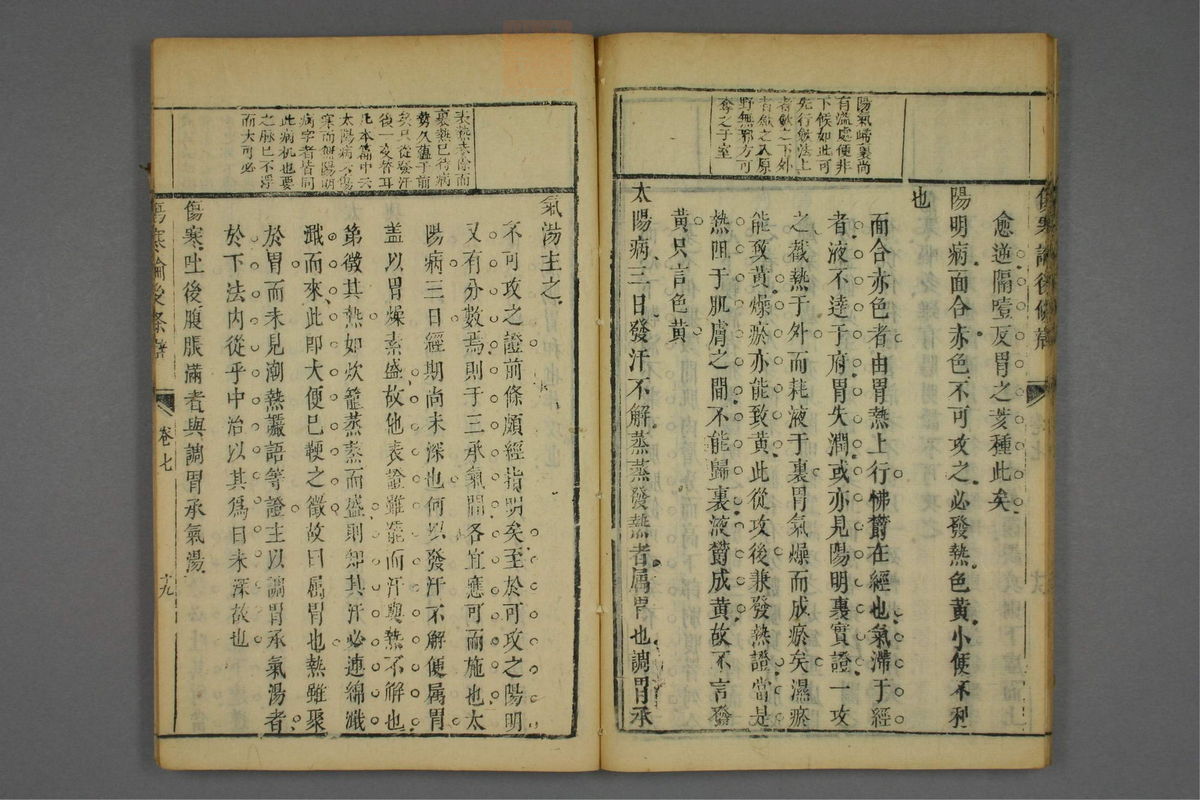 傷寒論後條辨
陽氣㠊裏尚
有溢處便非
下候如此可
先行斂法上
者斂之下外
者斂之入原
野無邪方可
奪之于室
愈逆隔噎反胃之萎種此矣
陽明病面合赤色不可攻之必發熱色黃小便不利
也
面合赤色者由胃熱上行怫欝在經也氣滯于經
者液不達于府胃失潤或亦見陽明裏實證一攻
之截熱于外而耗液于裏胃氣燥而成瘀矣濕瘀
能致黃燥瘀亦能致黃此從攻後兼發熱證當是
熱阻于肌膚之間不能歸裏液欝成黃故不言發
黃只言色黃
太陽病三日發汗不解蒸蒸發熱者属胃也調胃承
表藥表除而
裏熱已待病
勢久蘊于前
矣只從發汗
後一夜發耳
凡本篇中云
太陽病云傷
寒而無陽明
病字者皆同
此病机也要
之脉已不浮
而大可必
氣湯主之
不可攻之證前條頗經指明矣至於可攻之陽明
又有分數焉則于三承氣間各宜應可而施也太
陽病三日經期尚未深也何以發汗不解便属胃
盖以胃燥素盛故他表證雖罷而汗與熱不解也
第徵其熱如炊籠蒸蒸而盛則知其汗必連綿濈
濈而來此即大便已鞕之徵故曰属胃也熱雖聚
於胃而未見潮熱讝語等證主以調胃承氣湯者
於下法内從乎中治以其爲日未深故也
傷寒吐後腹脹滿者與調胃承氣湯
傷寒論後條辨
卷七
十九